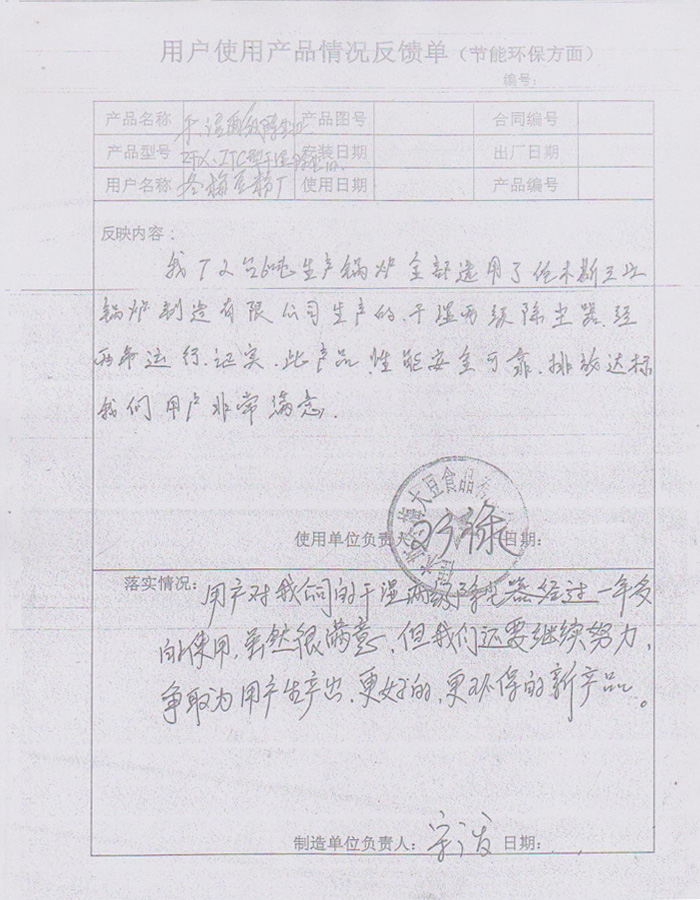 用户使用产品情况反馈单(节能环保方面)
编号:
产品名称 干湿两级除尘器 产品图号 合同编号
产品型号 安装日期 出厂日期
用户名称 冬梅豆粉厂 使用日期 产品编号
反映内容:
我厂2台6吨生产锅炉全部选用了佳木斯
锅炉制造有限公司生产的、干湿两级除尘器、经
两年运行、证实、此产品、性能安全可靠、排放达标
我们用户非常满意.
梅大豆食品
使用单位负责人 日期:
落实情况:用户对我公司的干湿两级除尘器经过一年多
的使用,虽然很满意、但我们还要继续努力、
争取为用户生产出、更好的、更环保的新产品。
制造单位负责人: 日期: